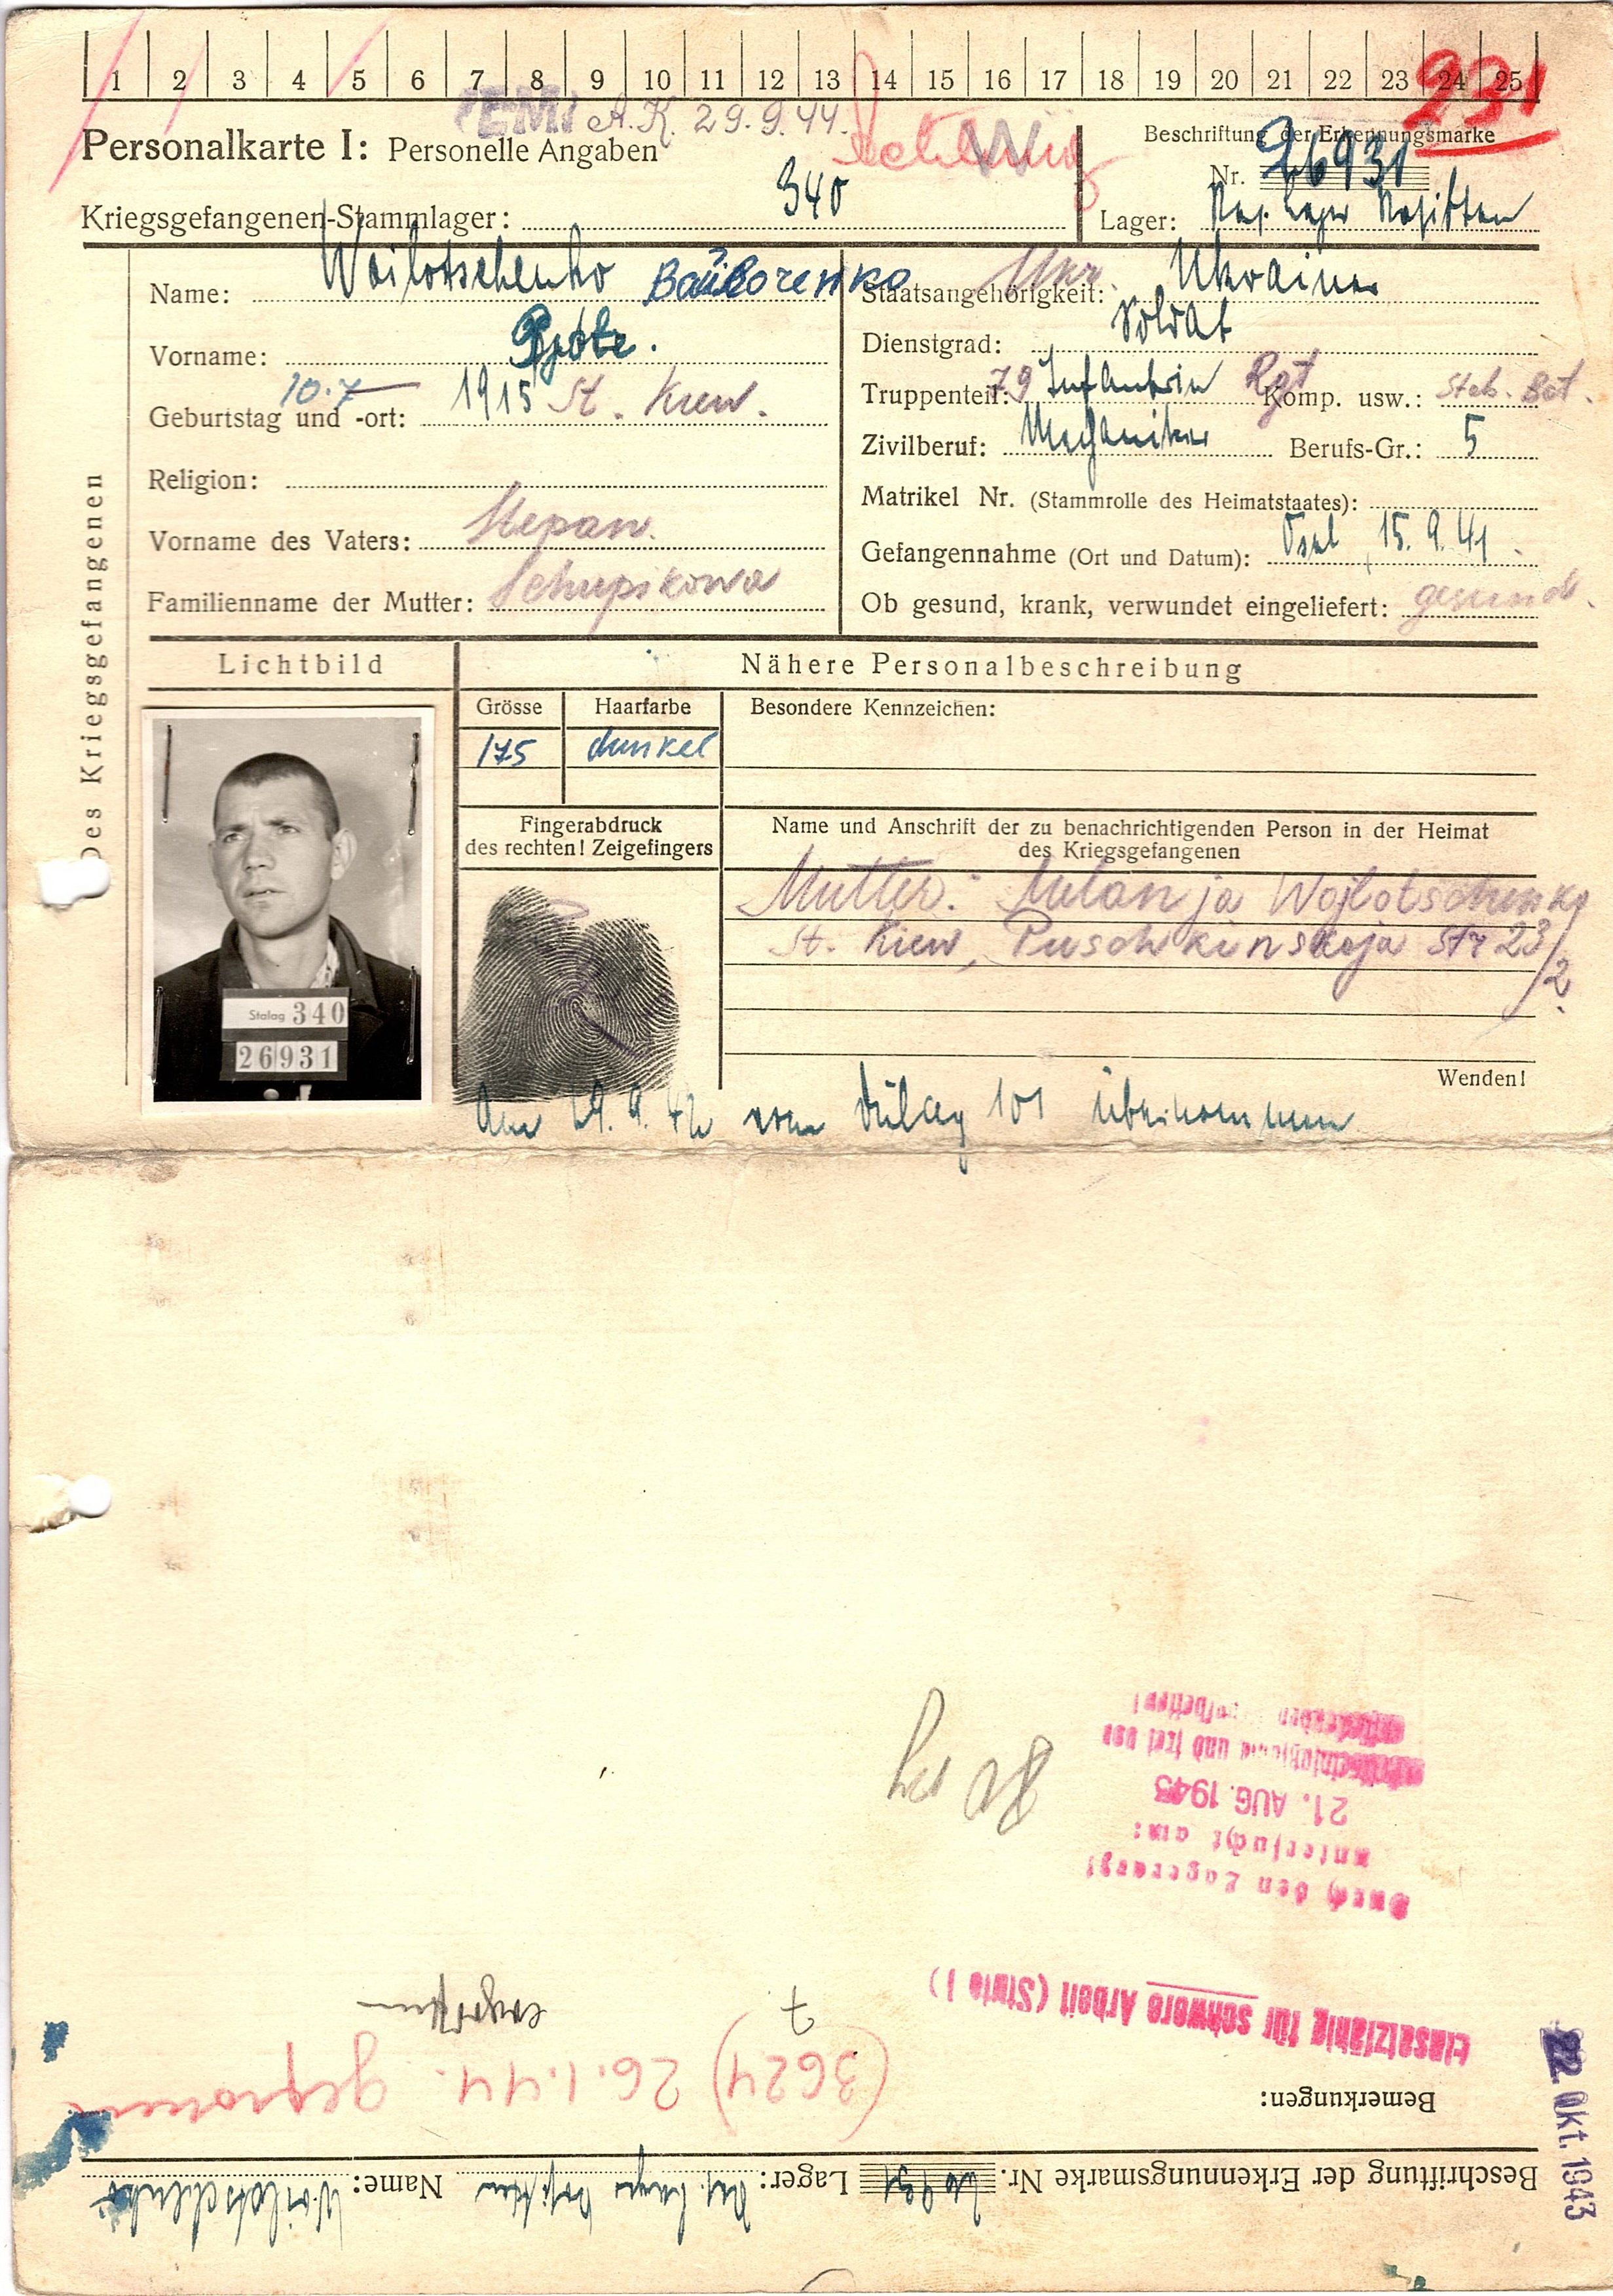 1 2 3 4 5 6 7 8 9 10 11 12 13 14 15 16 17 18 19 20 21 22 23 24 25
231
A.K. 29.9.44.
Personalkarte I: Personelle Angaben
Beschriftung der Erkennungsmarke
Nr. 26931
Kriegsgefangenen-Stammlager: 340
Lager:
Des Kriegsgefangenen
Name: Woilotschenko
Vorname:
Geburtstag und -ort: 10.7 1915 St. Kiew.
Religion:
Vorname des Vaters: Stepan.
Familienname der Mutter: Schupikowa
Staatsangehörigkeit: Ukr. Ukrainer
Dienstgrad: Soldat
Truppenteil: 79 Infanterie Rgt Komp. usw.:
Zivilberuf: Mechaniker Berufs-Gr.: 5
Matrikel Nr. (Stammrolle des Heimatstaates):
Gefangennahme (Ort und Datum): Ösel, 15.9.41.
Ob gesund, krank, verwundet eingeliefert: gesund.
Lichtbild
Nähere Personalbeschreibung
Grösse Haarfarbe Besondere Kennzeichen:
175 dunkel
Fingerabdruck
des rechten! Zeigefingers
Name und Anschrift der zu benachrichtigenden Person in der Heimat
des Kriegsgefangenen
Mutter: Melanja Wojlotschenko
St. Kiew, Puschkinskaja Str 23/2.
Stalag 340
26931
Wenden!
Am 29.9.42 vom Dulag 101 übernommen
Beschriftung der Erkennungsmarke Nr. 26931 Lager: Name: Woilotschenko
Bemerkungen:
22. Okt. 1943
(3624) 26.1.44.
7
Einsatzfähig für schwere Arbeit (Stufe I)
Durch den Lagerarzt
untersucht am:
21. AUG. 1943
und frei von